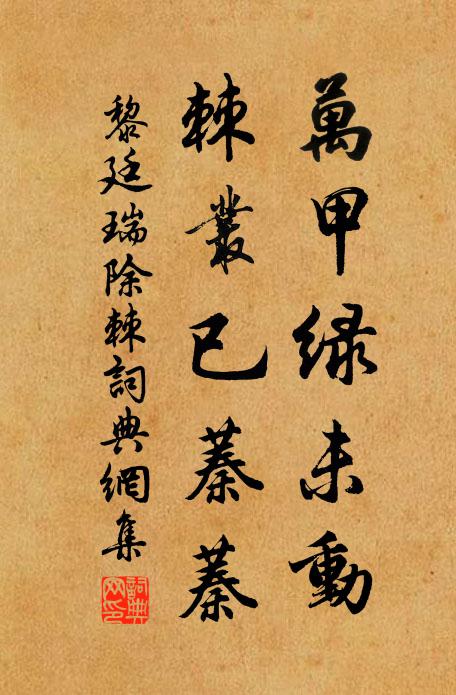 萬甲綠未動
棘叢已蓁蓁
黎廷瑞除棘詞典網集
詞典網印